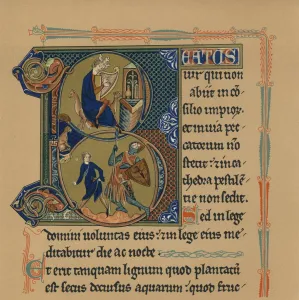 BEATUS
uir qui non
abiit in cō
silio impior̄
et in uia pec
catorum nō
stetit: et in ca
thedra pestilē
tie non sedit.
Sed in lege
domini uoluntas eius: et in lege eius me
ditabitur die ac nocte
Et erit tanquam lignum quod plantatū
est secus decursus aquarum: quod fruc